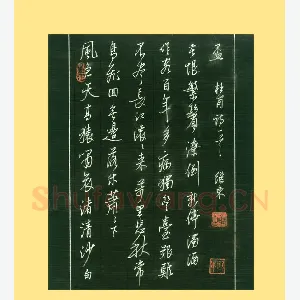 風急天高猿嘯哀渚清沙白
鳥飛回無邊落木蕭蕭下
不盡長江滾滾來萬里悲秋常
作客百年多病獨登臺艱難
苦恨繁霜鬢潦倒新停濁酒
盃 杜甫詩一首
Shufawang.CN